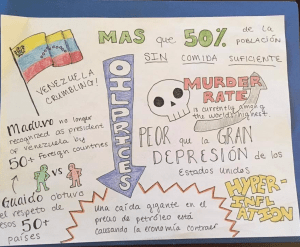 MAS que 50% de la
POBLACIÓN
SIN COMIDA SUFICIENTE
VENEZUELA
CRUMBLING!
OIL PRICES
MURDER
RATE
is currently among
the world's highest
Maduro no longer
recognized as president
of Venezuela by
50+ foreign countries
VS
PEOR que la GRAN
DEPRESIÓN de los
Estados Unidos
Guaido obtuvo
el respeto de
esos 50+
países
Una caída gigante en el
precio de petróleo está
causando la economía contraer
HYPER-
INFLATION